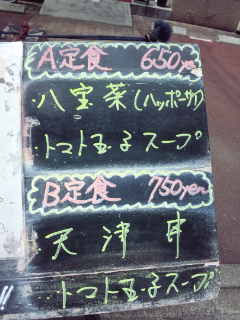 A定食 650yen
八宝菜(ハッポーサイ)
トマト玉子スープ
B定食 750yen
天津丼
トマト玉子スープ